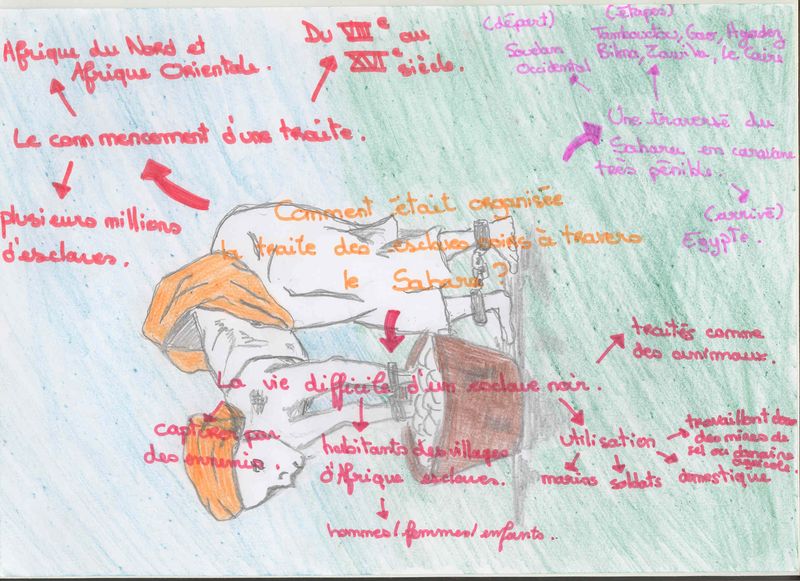 Afrique du Nord et
Afrique Orientale.
Du VIIIe au
XVIe siècle.
Le commencement d'une traite.
plusieurs millions
d'esclaves.
(départ)
Soudan
Occidental
(étapes)
Tombouctou, Gao, Agadez
Bilma, Zawila, Le Caire
Une traversé du
Sahara en caravane
très pénible.
(arrivé)
Egypte.
Comment était organisée
la traite des esclaves noirs à travers
le Sahara ?
La vie difficile d'un esclave noir.
capturer par
des ennemis.
habitants des villages
d'Afrique esclaves.
hommes/femmes/enfants.
traités comme
des animaux.
utilisation
marins
soldats
domestique
travaillent dans
des mines de
sel ou domaine
agricole.